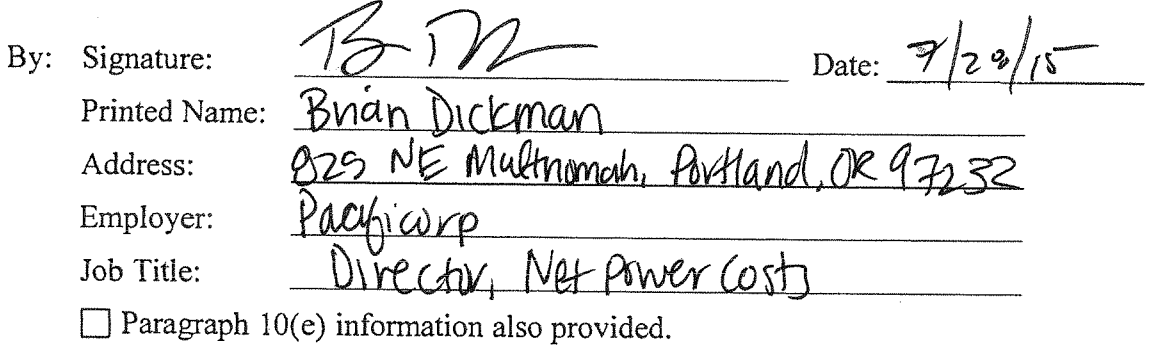 By: Signature: Date: 7/28/15
Printed Name: Brian Dickman
Address: 825 NE Multnomah, Portland, OR 97232
Employer: Pacificorp
Job Title: Director, Net Power Costs
☐ Paragraph 10(e) information also provided.